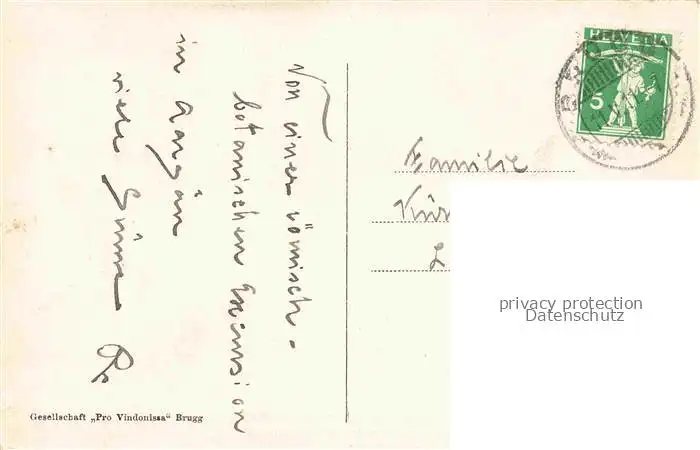 Von einer römisch-
botanischen Excursion
in Aargau
viele Grüsse
HELVETIA
5
Familie
Gesellschaft „Pro Vindonissa“ Brugg
privacy protection
Datenschutz